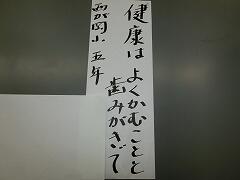 健康は よくかむことと
歯みがきで
西が岡小 五年